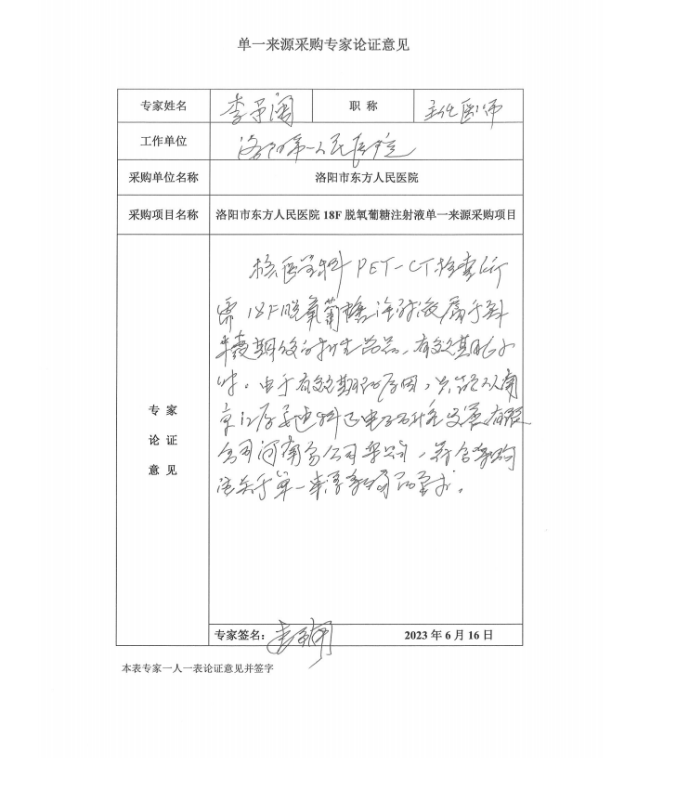 单一来源采购专家论证意见
专家姓名 李 职 称 主任医师
工作单位 洛阳第一人民医院
采购单位名称 洛阳市东方人民医院
采购项目名称 洛阳市东方人民医院 18F 脱氧葡糖注射液单一来源采购项目
核医学科 PET-CT检查所
需 18F脱氧葡糖注射液属于
期 的 药品,有效期 小
时。由于有效期的原因,只能从南
京江原安迪科正电子研究发展有限
公司河南分公司采购,符合采购
法关于单一来源采购的要求。
专 家
论 证
意 见
专家签名: 2023 年 6 月 16 日
本表专家一人一表论证意见并签字